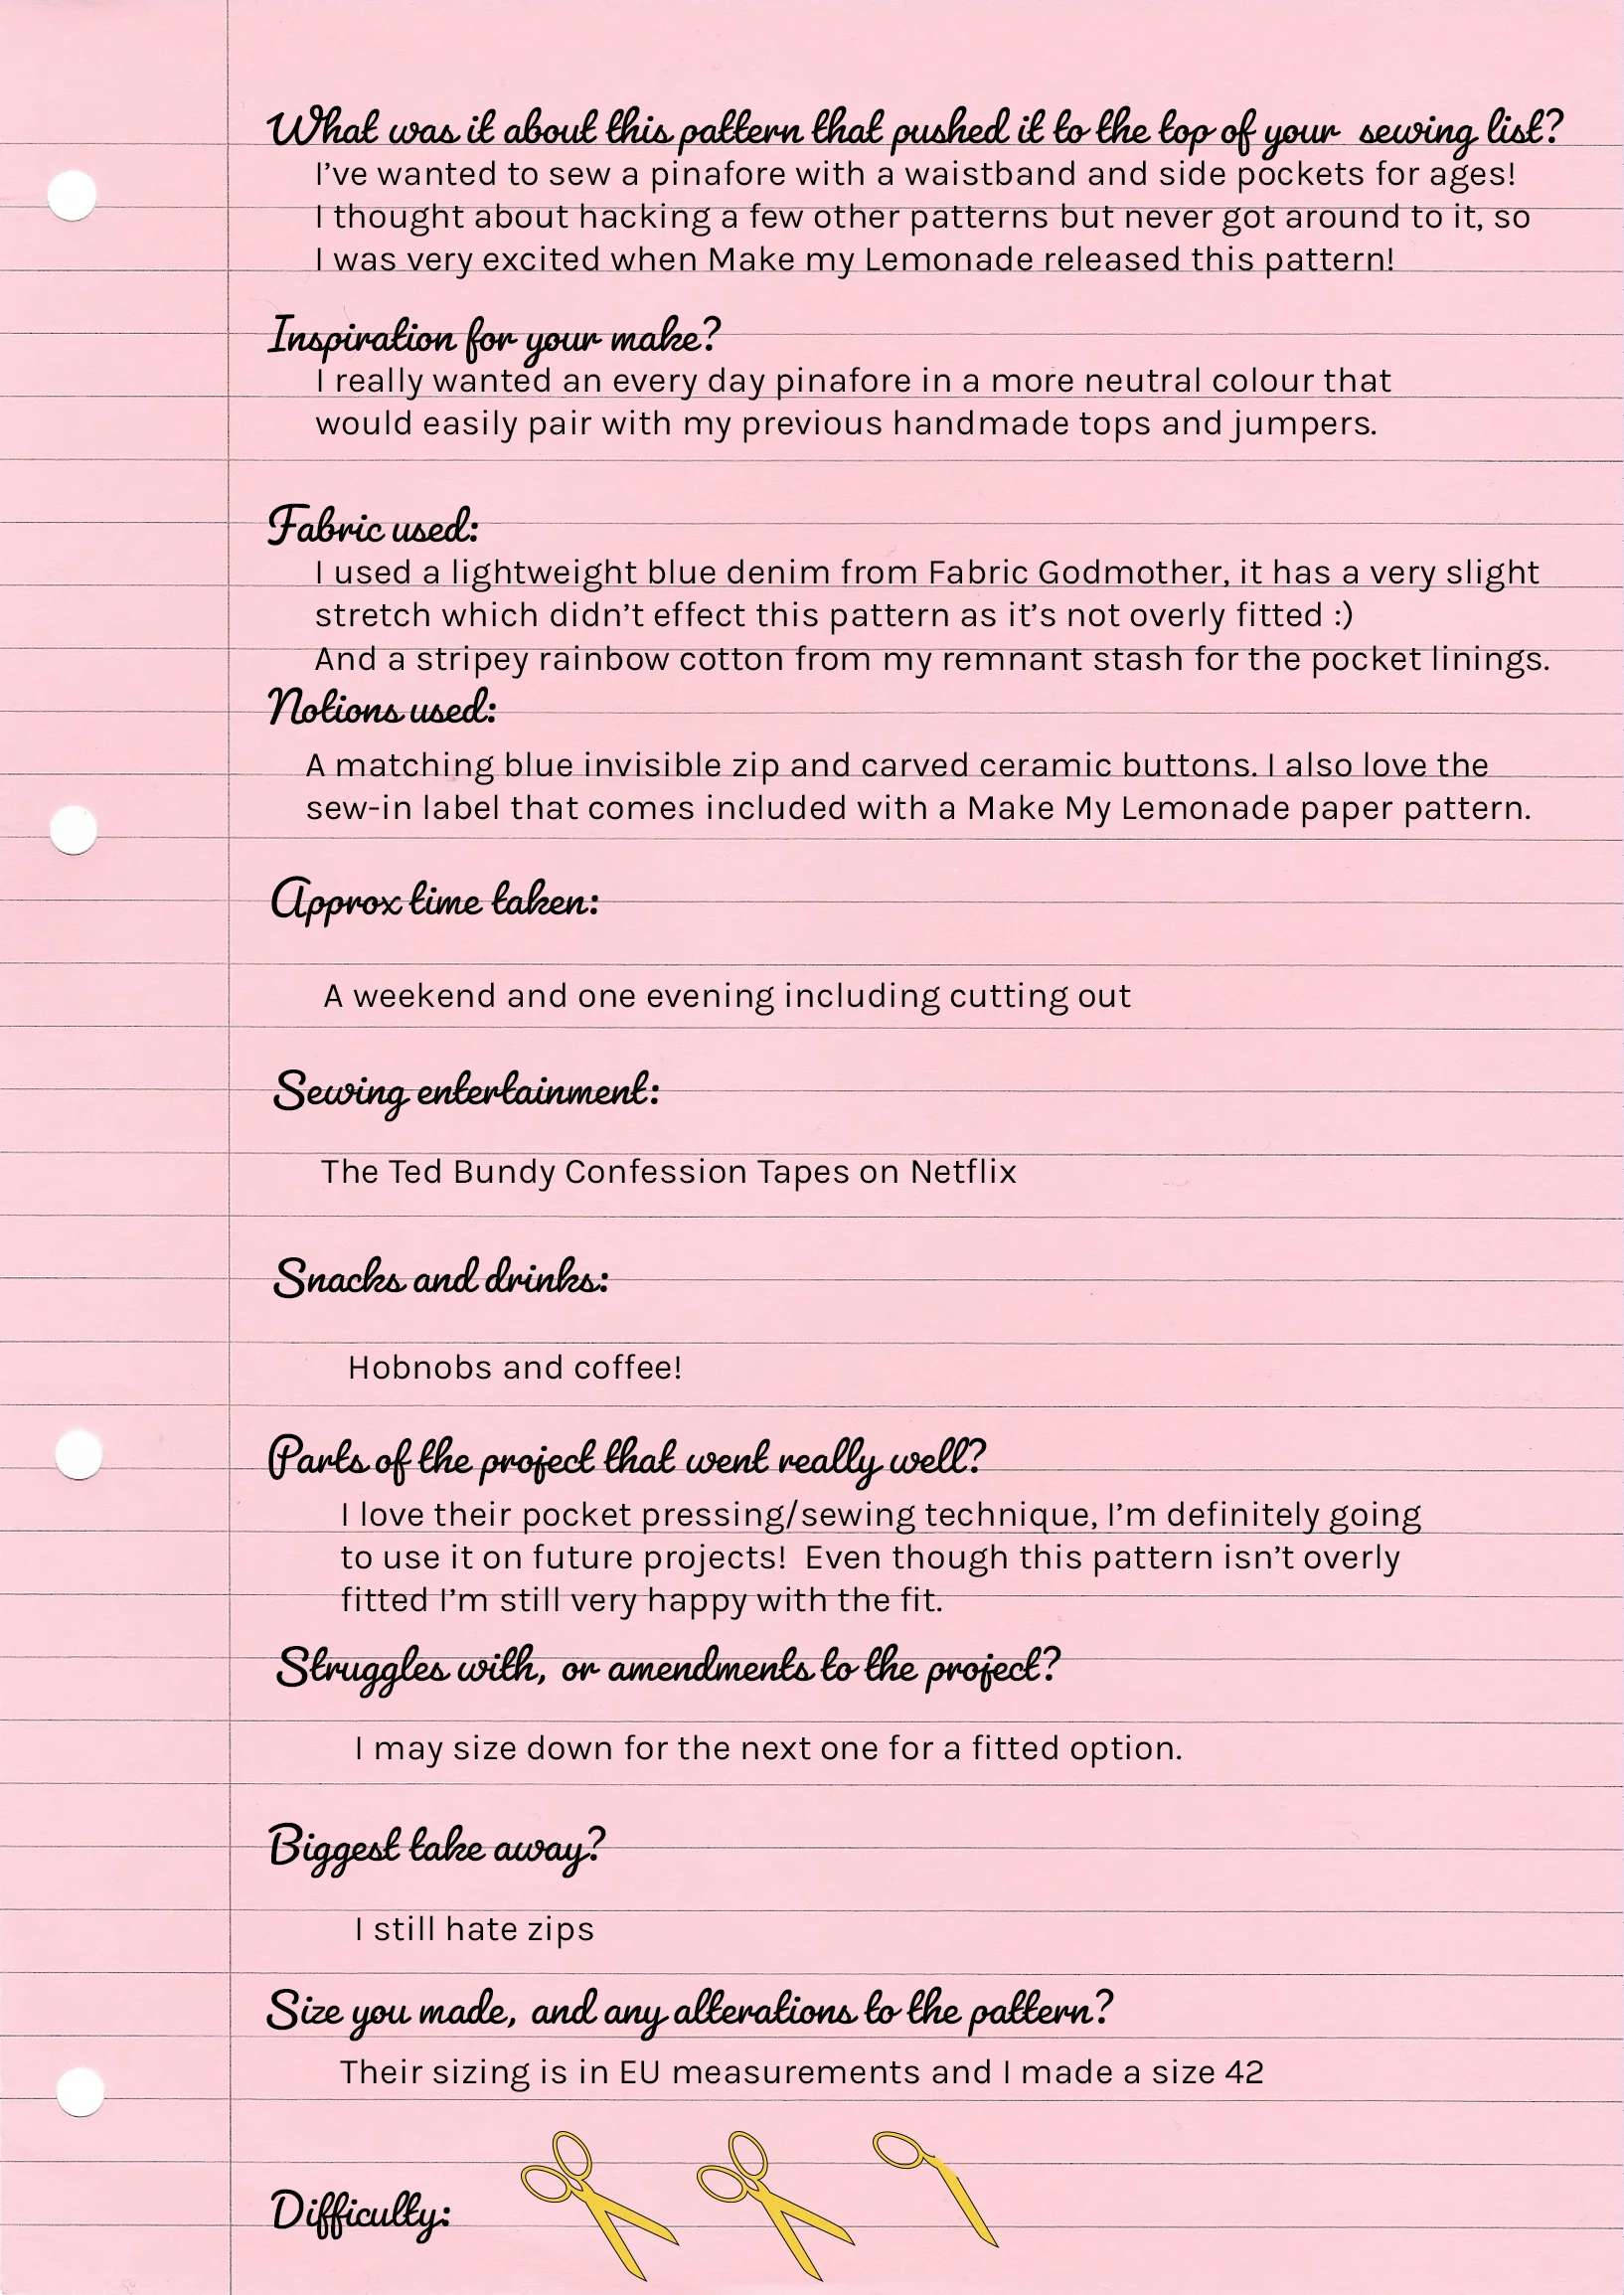 What was it about this pattern that pushed it to the top of your sewing list?
I've wanted to sew a pinafore with a waistband and side pockets for ages!
I thought about hacking a few other patterns but never got around to it, so
I was very excited when Make my Lemonade released this pattern!
Inspiration for your make?
I really wanted an every day pinafore in a more neutral colour that
would easily pair with my previous handmade tops and jumpers.
Fabric used:
I used a lightweight blue denim from Fabric Godmother, it has a very slight
stretch which didn't effect this pattern as it's not overly fitted :)
And a stripey rainbow cotton from my remnant stash for the pocket linings.
Notions used:
A matching blue invisible zip and carved ceramic buttons. I also love the
sew-in label that comes included with a Make My Lemonade paper pattern.
Approx time taken:
A weekend and one evening including cutting out
Sewing entertainment:
The Ted Bundy Confession Tapes on Netflix
Snacks and drinks:
Hobnobs and coffee!
Parts of the project that went really well?
I love their pocket pressing/sewing technique, I'm definitely going
to use it on future projects!  Even though this pattern isn't overly
fitted I'm still very happy with the fit.
Struggles with, or amendments to the project?
I may size down for the next one for a fitted option.
Biggest take away?
I still hate zips
Size you made, and any alterations to the pattern?
Their sizing is in EU measurements and I made a size 42
Difficulty: